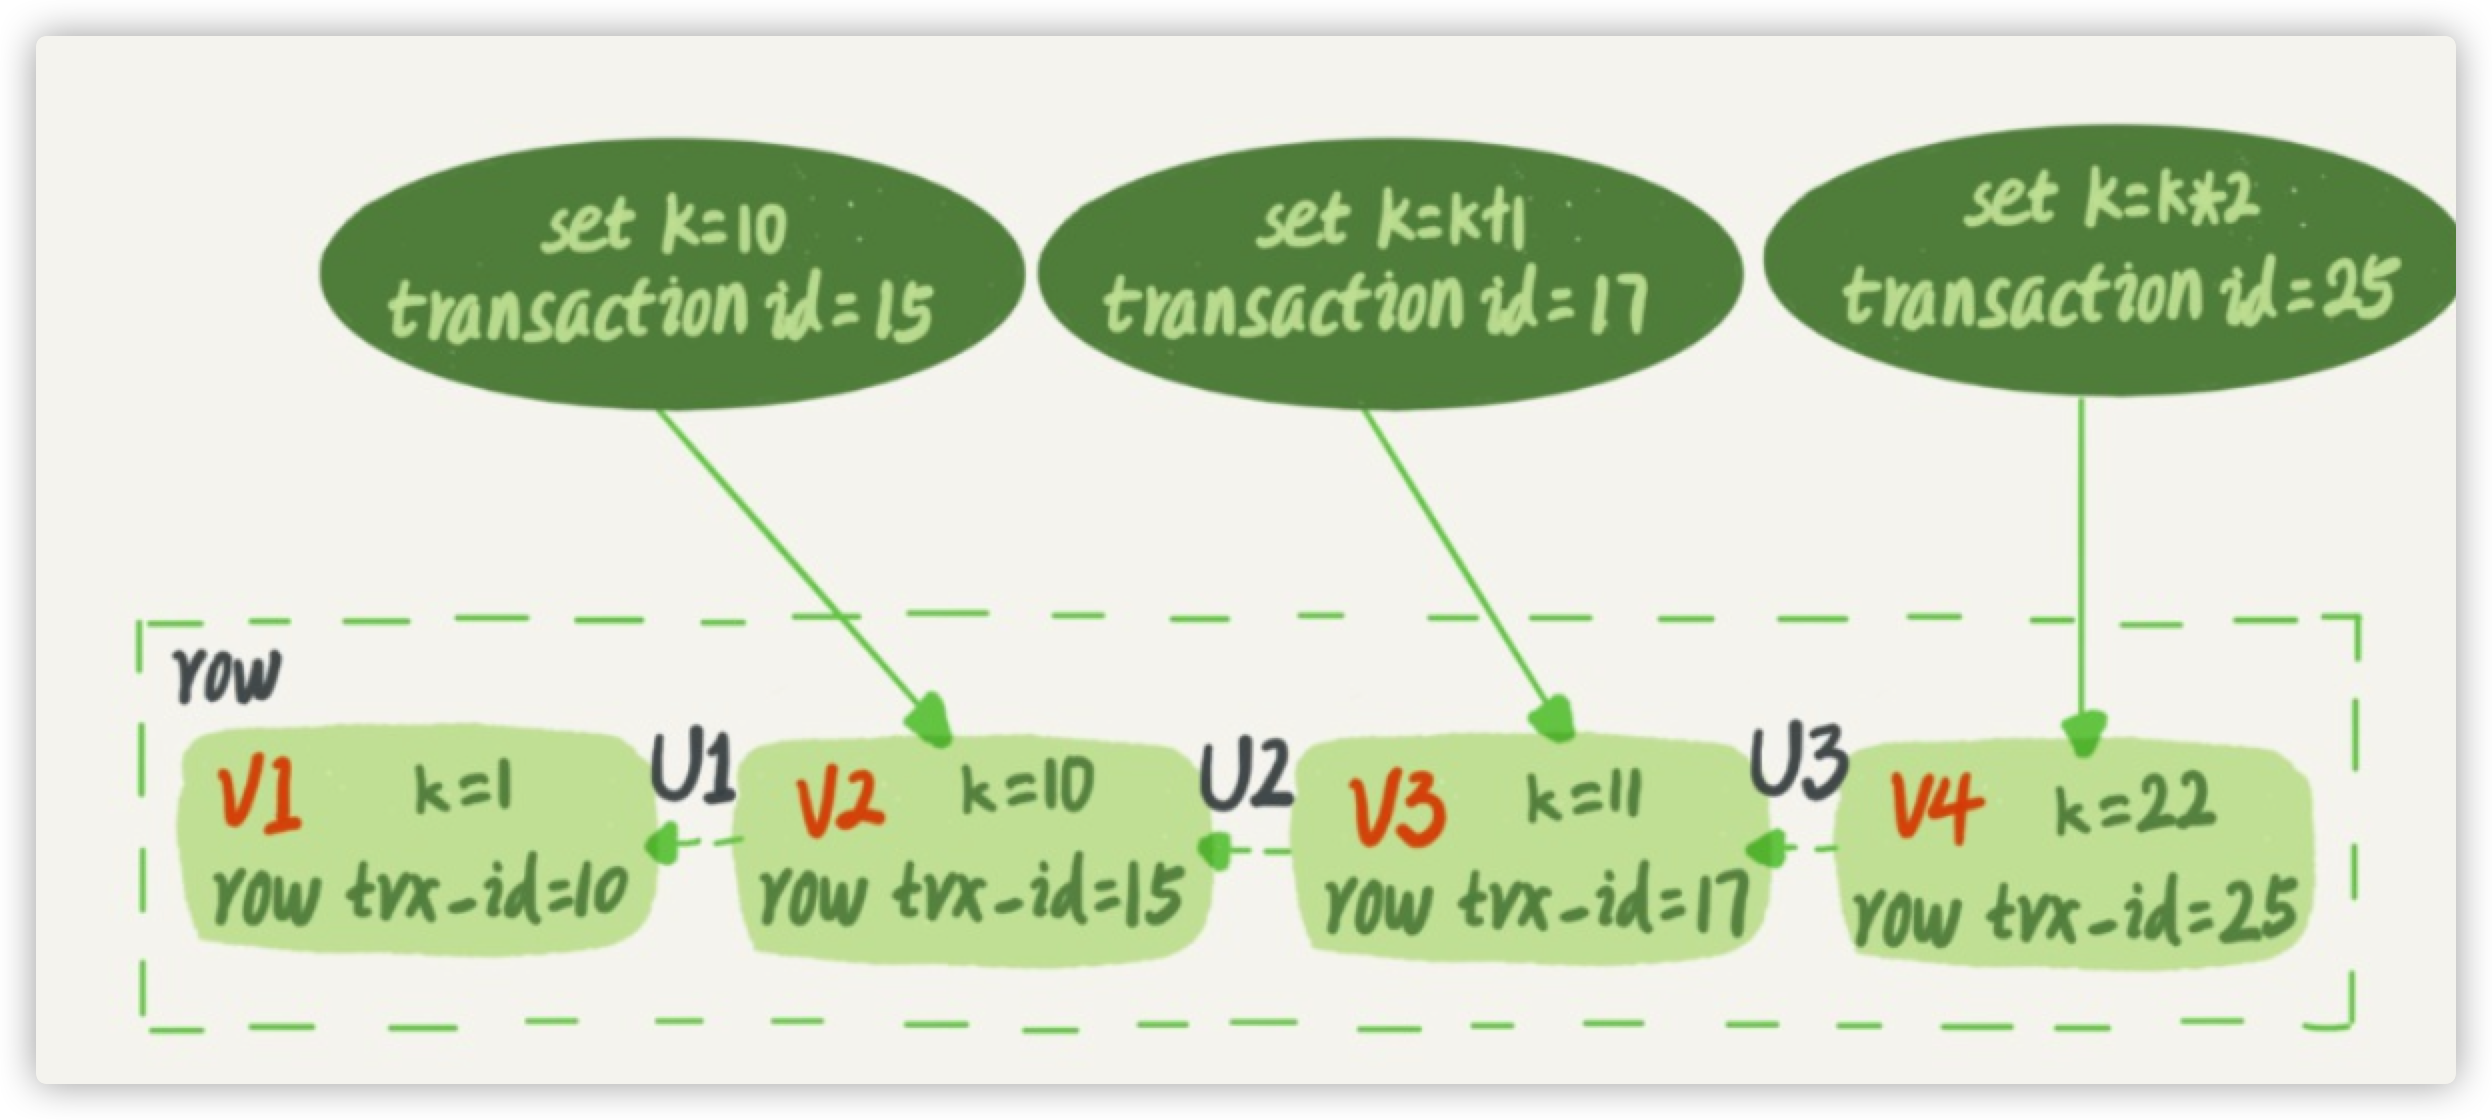 set k=10
transaction id=15
set k=k+1
transaction id=17
set k=k*2
transaction id=25
row
V1 k=1
row trx-id=10
U1
V2 k=10
row trx-id=15
U2
V3 k=11
row trx-id=17
U3
V4 k=22
row trx-id=25